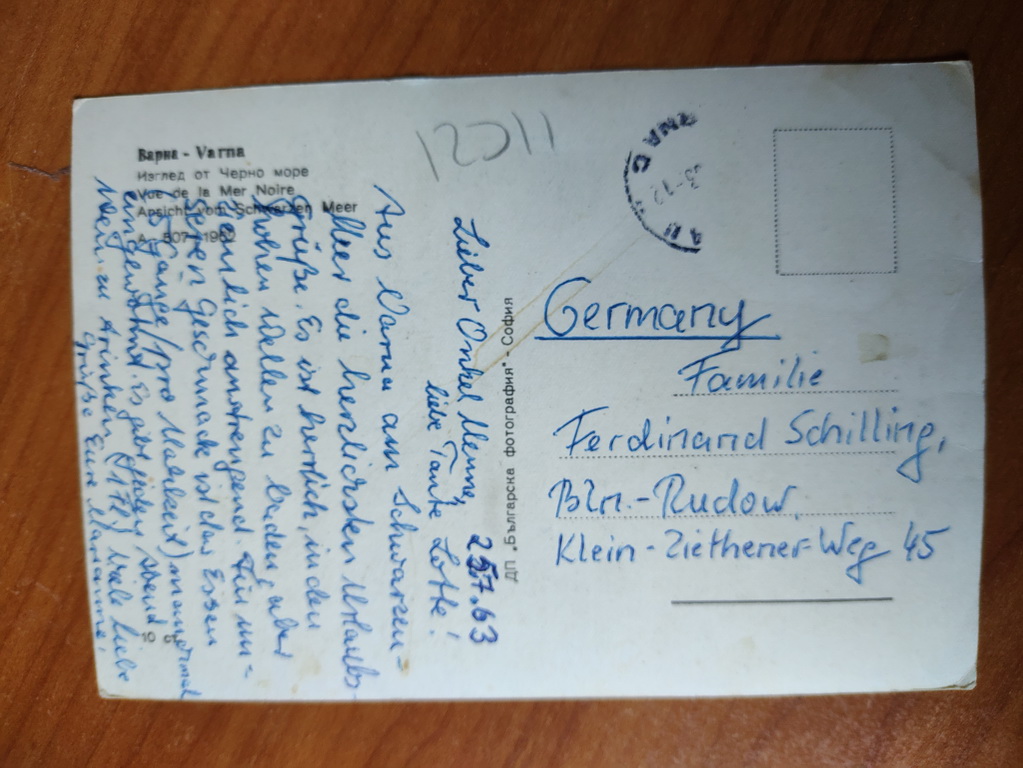 Варна - Varna
Изглед от Черно море
Vue de la Mer Noire
Ansicht vom Schwarzen Meer
А 507 - 1962
12011
25.7.63
Lieber Onkel Menne,
liebe Tante Lotte!
Aus Varna am Schwarzen-
Meer die herzlichsten Urlaubs-
Grüße. Es ist herrlich, in den
hohen Wellen zu baden, aber
ziemlich anstrengend. Für un-
seren Geschmack ist das Essen
(5 Gänge pro Mahlzeit) manchmal
ungewohnt. Es gibt jeden Abend
Wein zu trinken Viele liebe
Grüße Eure Marianne.
10 ст.
ДП „Българска фотография" - София
Germany
Familie
Ferdinand Schilling,
Bln.-Rudow,
Klein-Ziethener-Weg 45